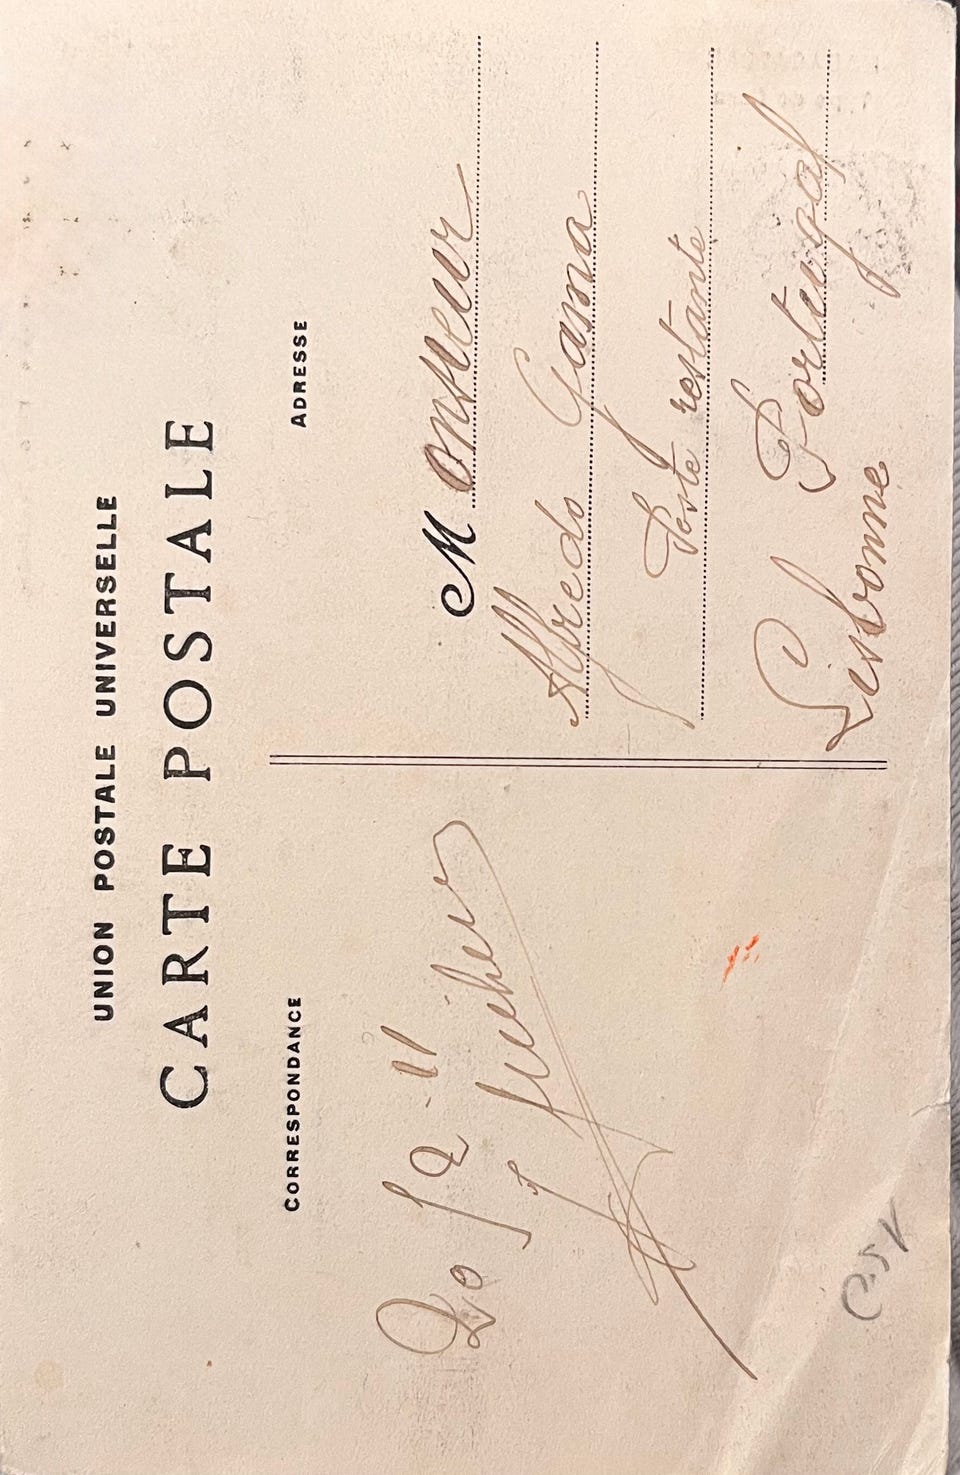 UNION POSTALE UNIVERSELLE
CARTE POSTALE
CORRESPONDANCE
ADRESSE
Monsieur
Alfredo Gama
Poste restante
Lisbonne Portugal